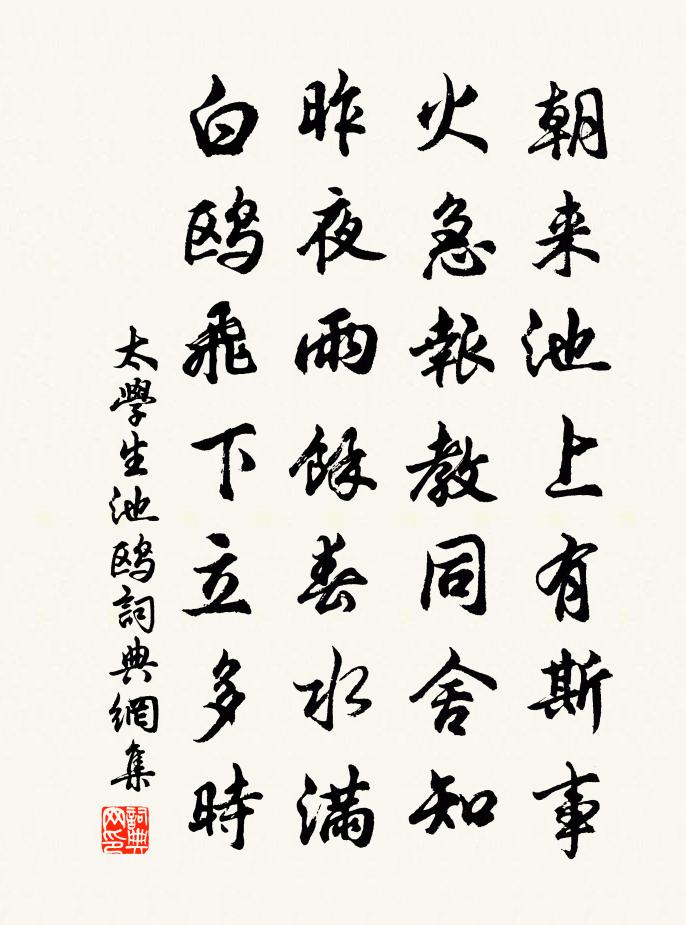 朝来池上有斯事
火急報教同舍知
昨夜雨餘春水滿
白鸥飛下立多時
太學生池鸥詞典網集
詞典
网印